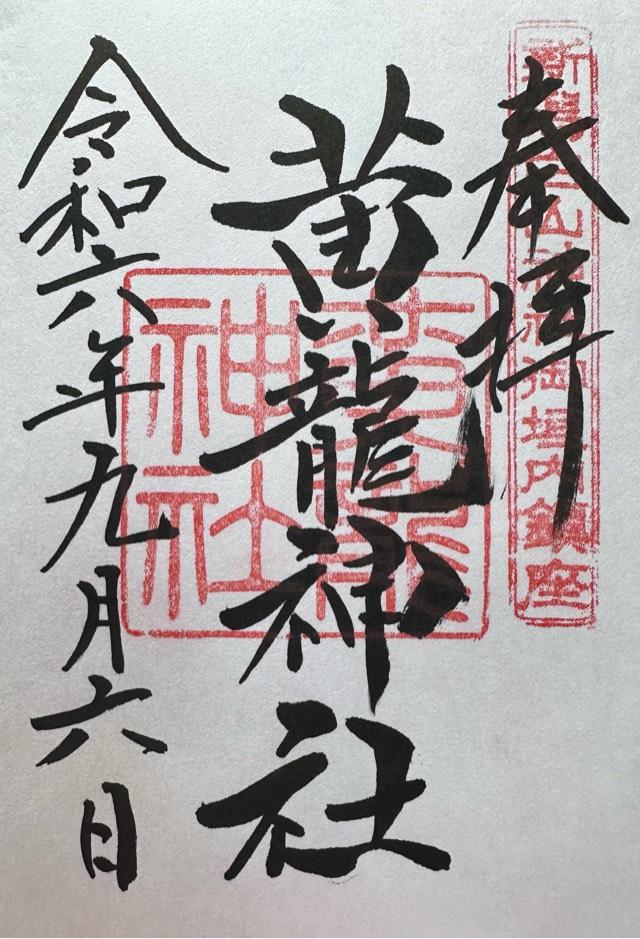 奉拝
神社御境内鎮座
黄龍神社
黄龍
神社
令和六年九月六日